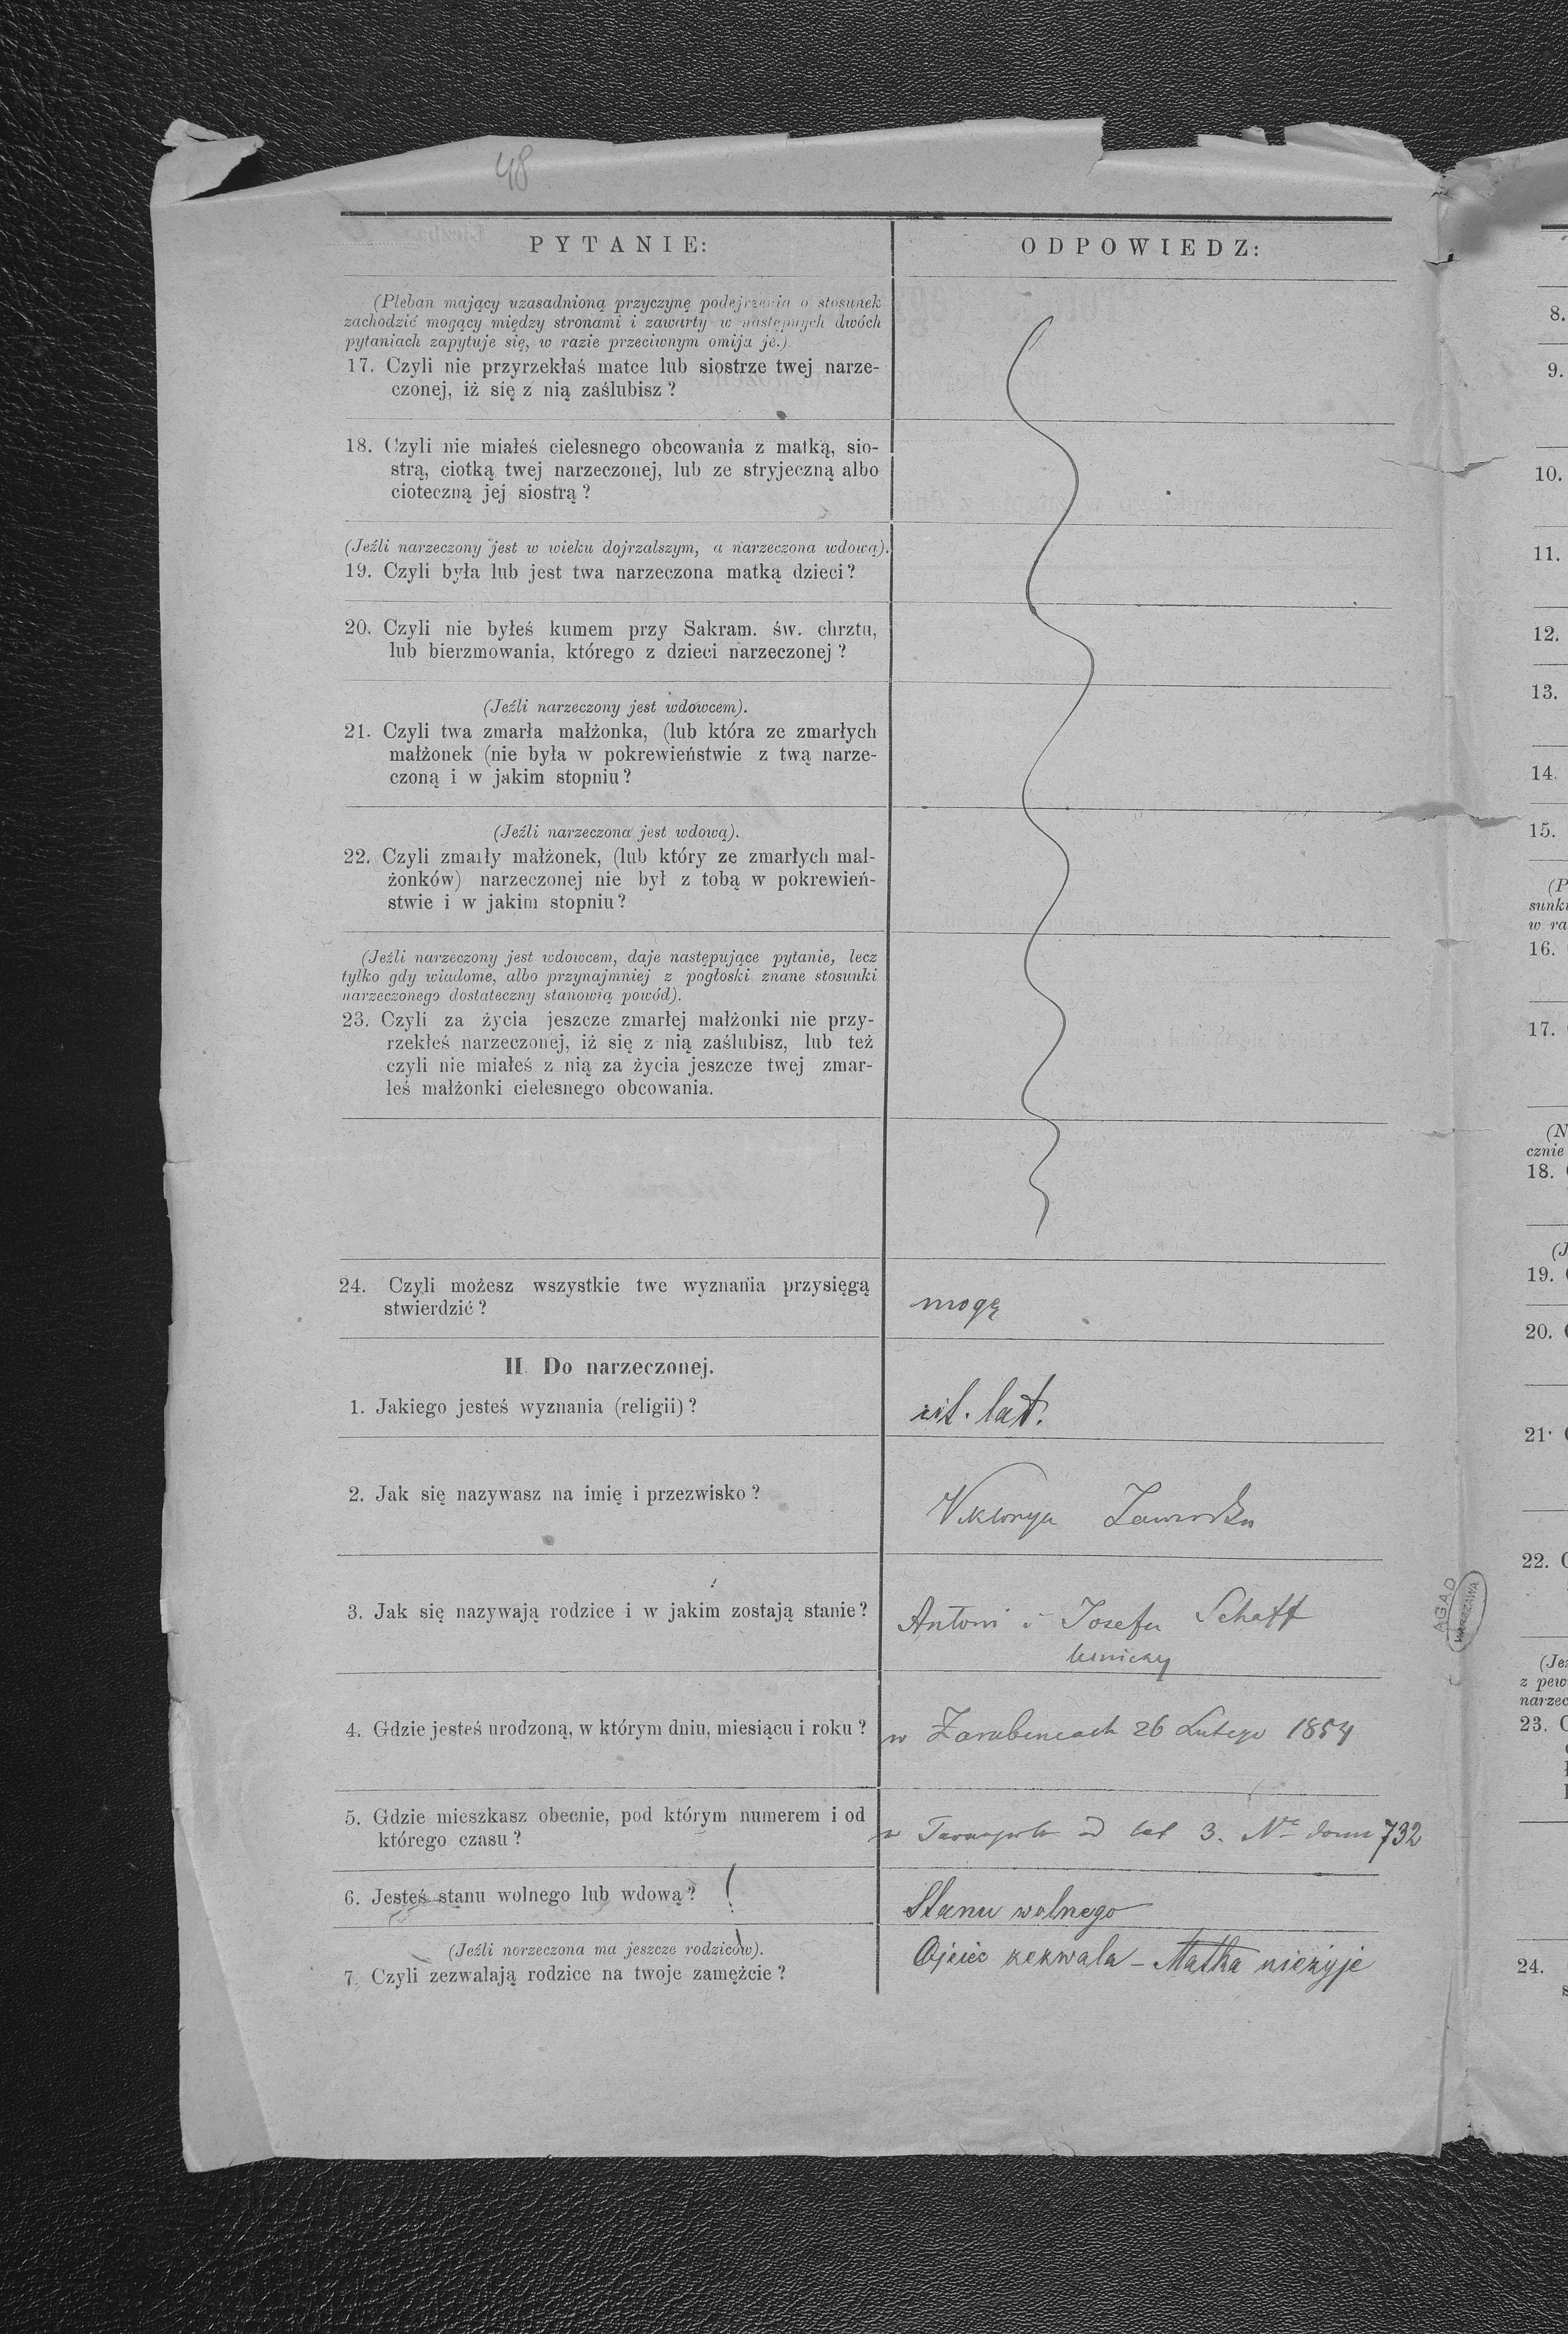 48
PYTANIE:
ODPOWIEDZ:
(Pleban mający uzasadnioną przyczynę podejrzenia o stosunek
zachodzić mogący między stronami i zawarty w następnych dwóch
pytaniach zapytuje się, w razie przeciwnym omija je.)
17. Czyli nie przyrzekłaś matce lub siostrze twej narze-
czonej, iż się z nią zaślubisz?
18. Czyli nie miałeś cielesnego obcowania z matką, sio-
strą, ciotką twej narzeczonej, lub ze stryjeczną albo
cioteczną jej siostrą?
(Jeźli narzeczony jest w wieku dojrzalszym, a narzeczona wdową).
19. Czyli była lub jest twa narzeczona matką dzieci?
20. Czyli nie byłeś kumem przy Sakram. św. chrztu,
lub bierzmowania, którego z dzieci narzeczonej?
(Jeźli narzeczony jest wdowcem).
21. Czyli twa zmarła małżonka, (lub która ze zmarłych
małżonek (nie była w pokrewieństwie z twą narze-
czoną i w jakim stopniu?
(Jeźli narzeczona jest wdową).
22. Czyli zmarły małżonek, (lub który ze zmarłych mał-
żonków) narzeczonej nie był z tobą w pokrewień-
stwie i w jakim stopniu?
(Jeźli narzeczony jest wdowcem, daje następujące pytanie, lecz
tylko gdy wiadome, albo przynajmniej z pogłoski znane stosunki
narzeczonego dostateczny stanowią powód).
23. Czyli za życia jeszcze zmarłej małżonki nie przy-
rzekłeś narzeczonej, iż się z nią zaślubisz, lub też
czyli nie miałeś z nią za życia jeszcze twej zmar-
łeś małżonki cielesnego obcowania.
24. Czyli możesz wszystkie twe wyznania przysięgą
stwierdzić?
mogę
II. Do narzeczonej.
1. Jakiego jesteś wyznania (religii)?
rit. lat.
2. Jak się nazywasz na imię i przezwisko?
Viktorya
3. Jak się nazywają rodzice i w jakim zostają stanie?
Antoni i Josefa Schaff
leśniczy
4. Gdzie jesteś urodzoną, w którym dniu, miesiącu i roku?
w Zarubincach 26 Lutego 1854
5. Gdzie mieszkasz obecnie, pod którym numerem i od
którego czasu?
w Tarnopolu od lat 3. Nº domu 732
6. Jesteś stanu wolnego lub wdową?
Stanu wolnego
(Jeźli norzeczona ma jeszcze rodziców).
7. Czyli zezwalają rodzice na twoje zamęźcie?
Ojciec zezwala – Matka nieżyje
AGAD
WARSZAWA
8.
9.
10.
11.
12.
13.
14.
15.
(P
sunku
w ra
16.
17.
(N
cznie
18.
(J
19.
20.
21.
22.
(Je
z pew
narzec
23.
24.